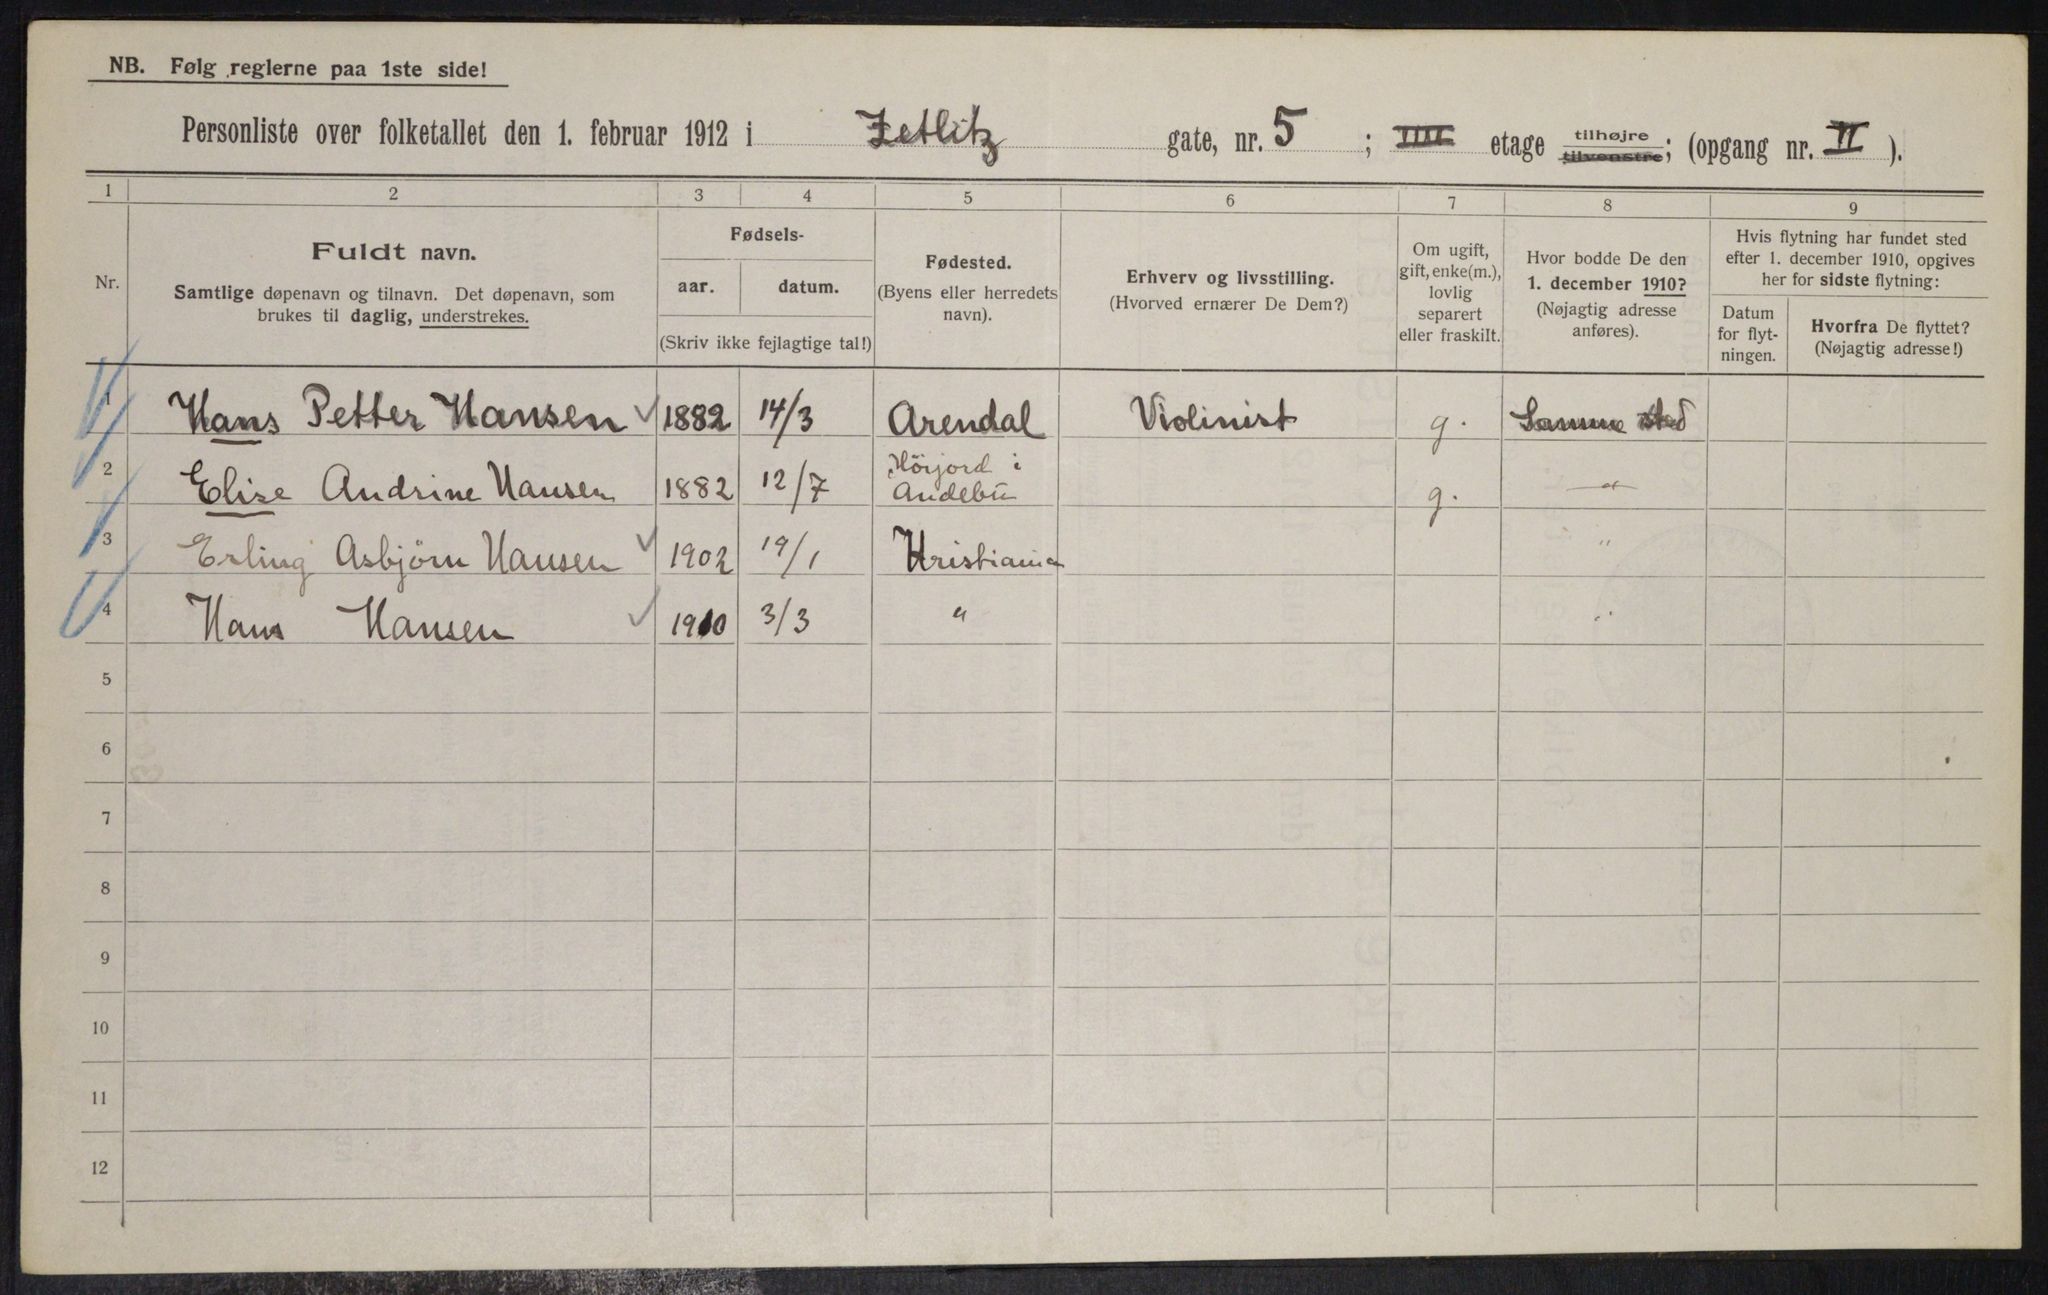 NB. Følg reglerne paa 1ste side!
Personliste over folketallet den 1. februar 1912 i Zetlitz gate, nr. 5 ; IIII etage tilhøjre tilvenstre; (opgang nr. II ).
1 2 3 4 5 6 7 8 9
Nr.
Fuldt navn.
Samtlige døpenavn og tilnavn. Det døpenavn, som
brukes til daglig, understrekes.
Fødsels-
aar. datum.
(Skriv ikke fejlagtige tal!)
Fødested.
(Byens eller herredets
navn).
Erhverv og livsstilling.
(Hvorved ernærer De Dem?)
Om ugift,
gift, enke(m.),
lovlig
separert
eller fraskilt.
Hvor bodde De den
1. december 1910?
(Nøjagtig adresse
anføres).
Hvis flytning har fundet sted
efter 1. december 1910, opgives
her for sidste flytning:
Datum
for flyt-
ningen.
Hvorfra De flyttet?
(Nøjagtig adresse!)
1 Hans Petter Hansen 1882 14/3 Arendal Violinist g. Samme sted
2 Elise Andrine Hansen 1882 12/7 Hörjord i Andebu g. —"—
3 Erling Asbjörn Hansen 1902 19/1 Kristiania "
4 Hans Hansen 1910 3/3 " "
5
6
7
8
9
10
11
12